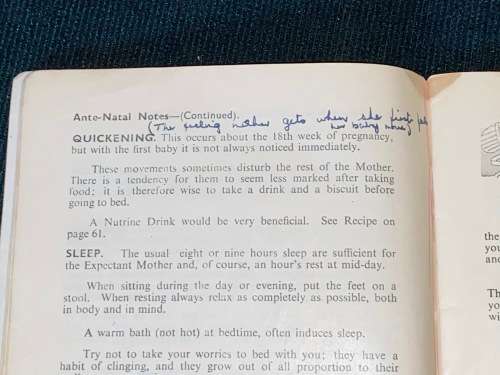 Ante-Natal Notes—(Continued).
(The feeling mother gets when she first
her baby move)
QUICKENING. This occurs about the 18th week of pregnancy,
but with the first baby it is not always noticed immediately.
These movements sometimes disturb the rest of the Mother.
There is a tendency for them to seem less marked after taking
food; it is therefore wise to take a drink and a biscuit before
going to bed.
A Nutrine Drink would be very beneficial. See Recipe on
page 61.
SLEEP. The usual eight or nine hours sleep are sufficient for
the Expectant Mother and, of course, an hour's rest at mid-day.
When sitting during the day or evening, put the feet on a
stool. When resting always relax as completely as possible, both
in body and in mind.
A warm bath (not hot) at bedtime, often induces sleep.
Try not to take your worries to bed with you; they have a
habit of clinging, and they grow out of all proportion to their
the
you
and
Th
yo
wi